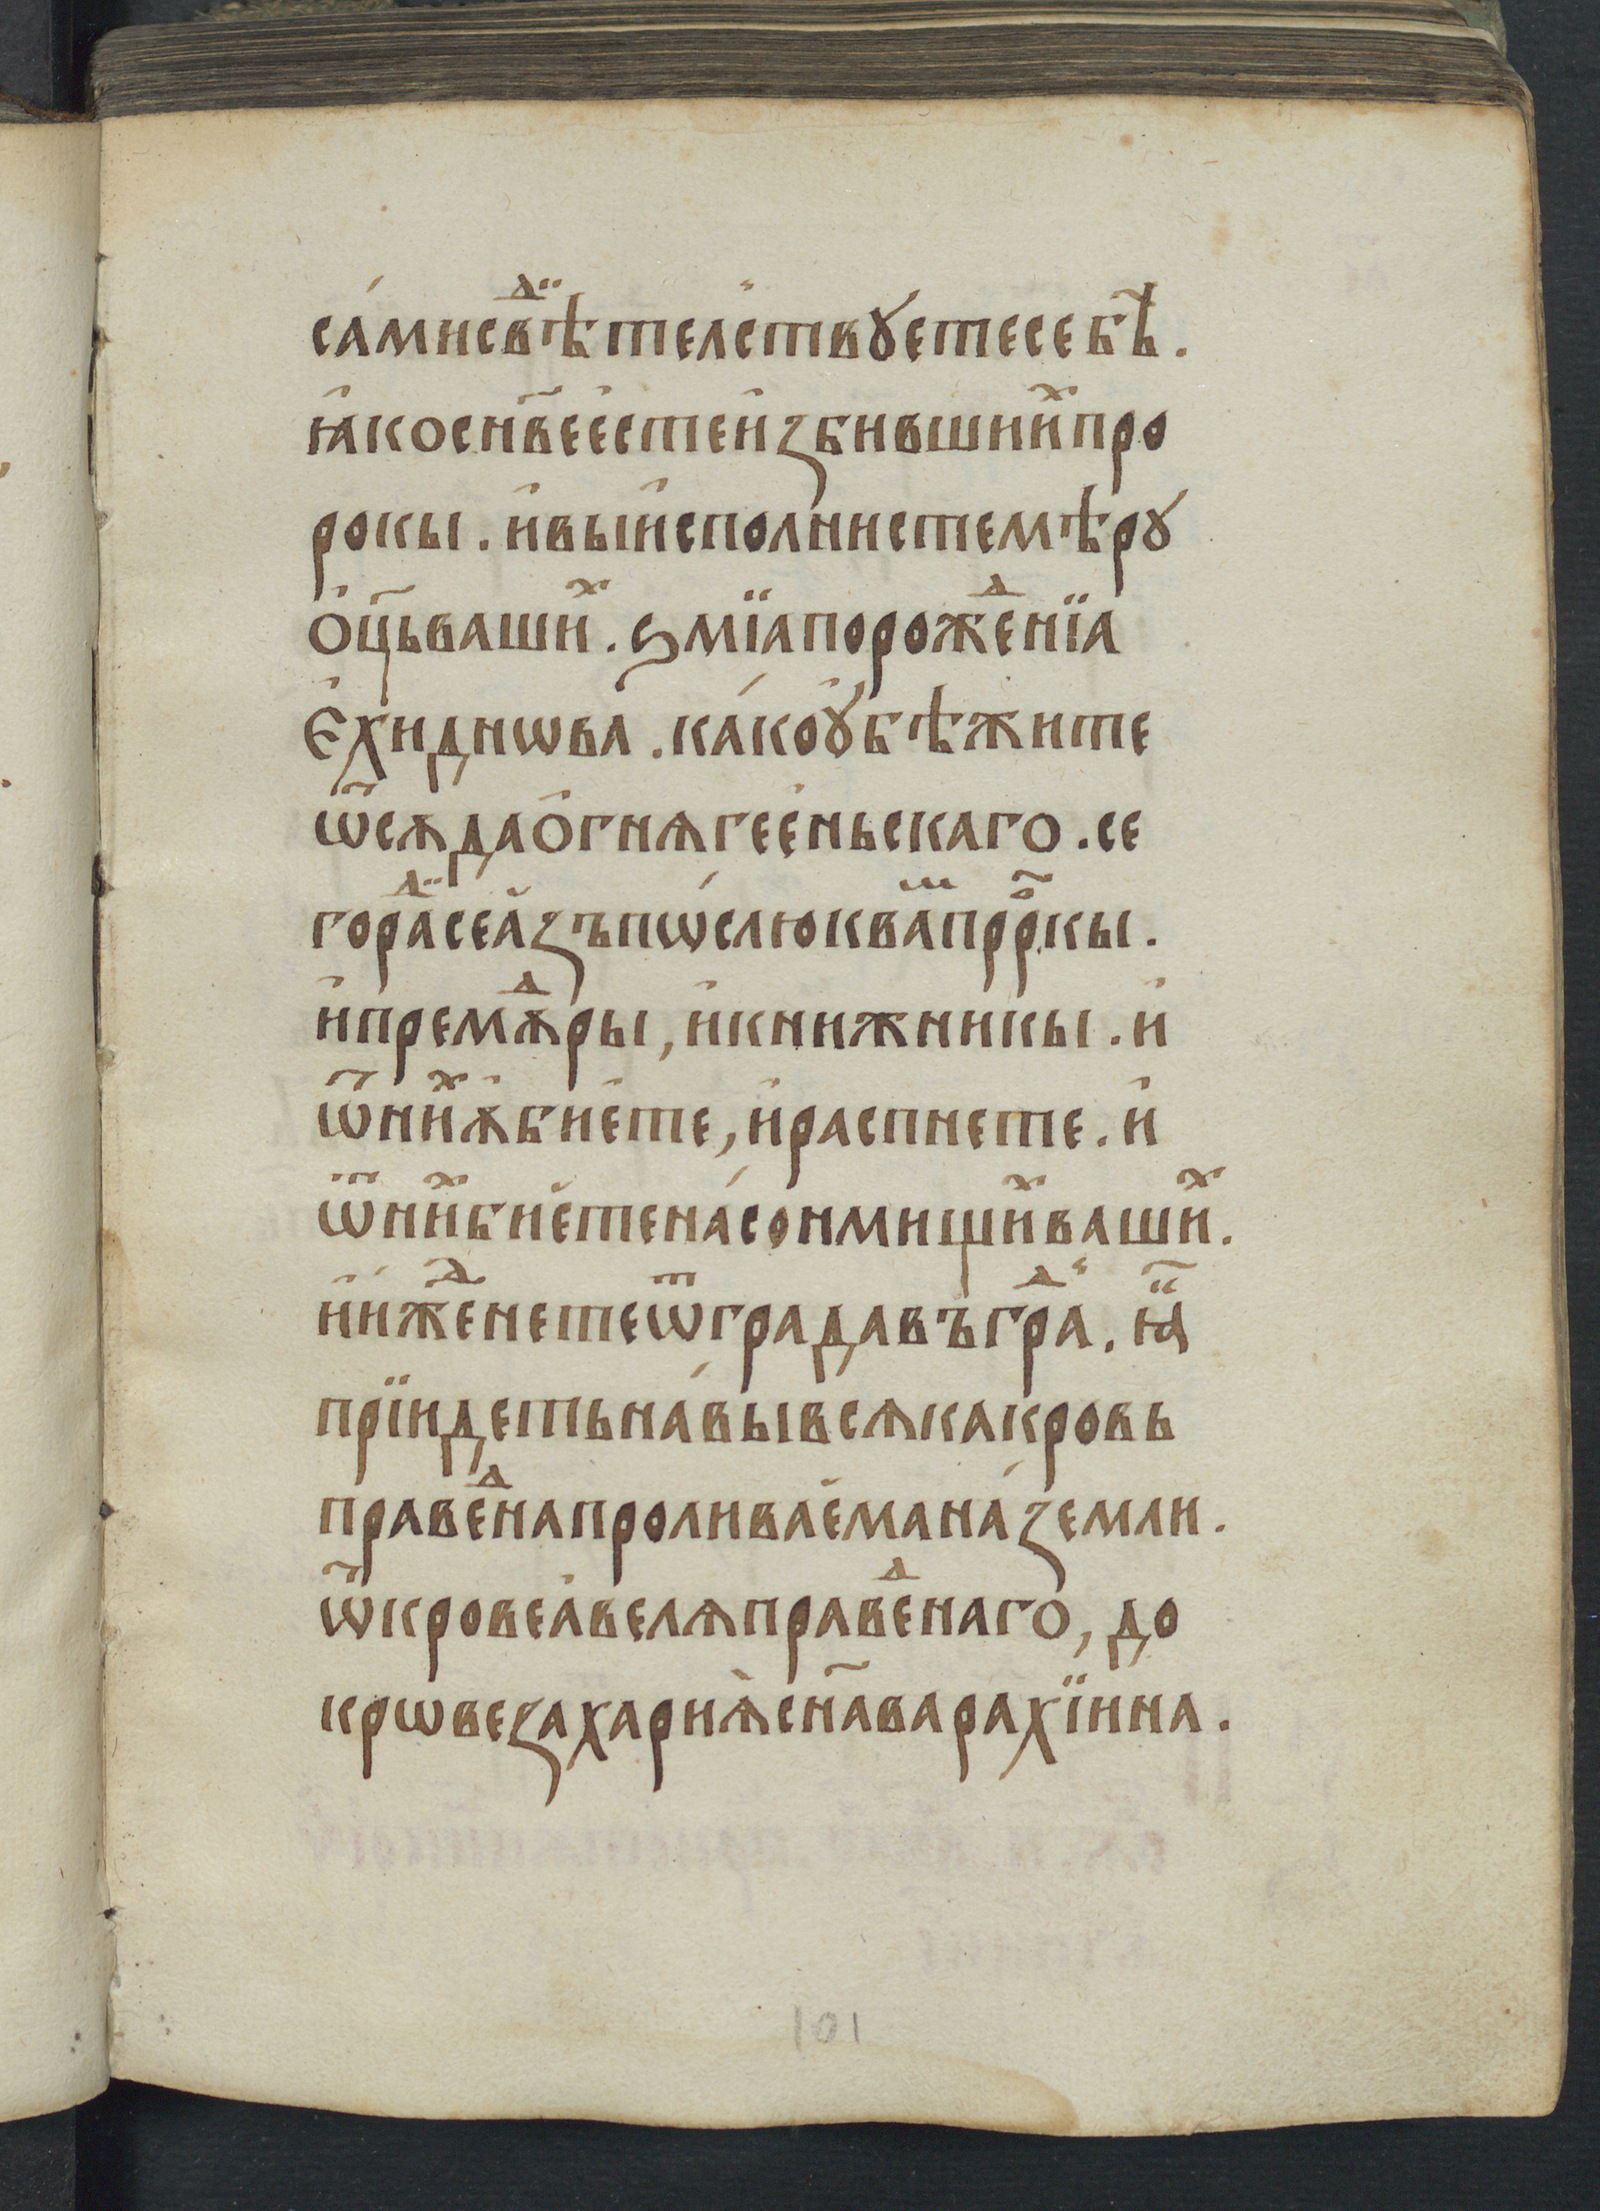 са́мисвѣⷣ҇телс̾твꙋ́етесебѣ̃.
ꙗ҆косн҃веѐстеи҆збившиих̾про
рокы.и҆вы̀и҆сполнистемѣрꙋ
ѻ҆ц҃ьвашиⷯ.ѕмїапорожⷣенїа
є҆хидиѡва.ка́коꙋ҆бѣжите
ѿсѫдаѻ҆гнѧгее҆ньскаго.се
гораⷣсеа҆зъпѡ́слюкваⷨпрⷪ҇ркы.
и҆премѫⷣры,и҆книжникы.и҆
ѿниⷯѫ҆бие҆те,и҆распнете.и҆
ѿниⷯбие҆тена́сонмищиⷯвашиⷯ.
и҆и́жⷣенетеѿградавъграⷣ.ꙗ҃
прїидетьна́вывсѧкакровь
правеⷣнапролива́еманаземли.
ѿкровеа҆велѧправеⷣнаго,до
крѡвезахариѧ̀сн҃аварахїина.
101